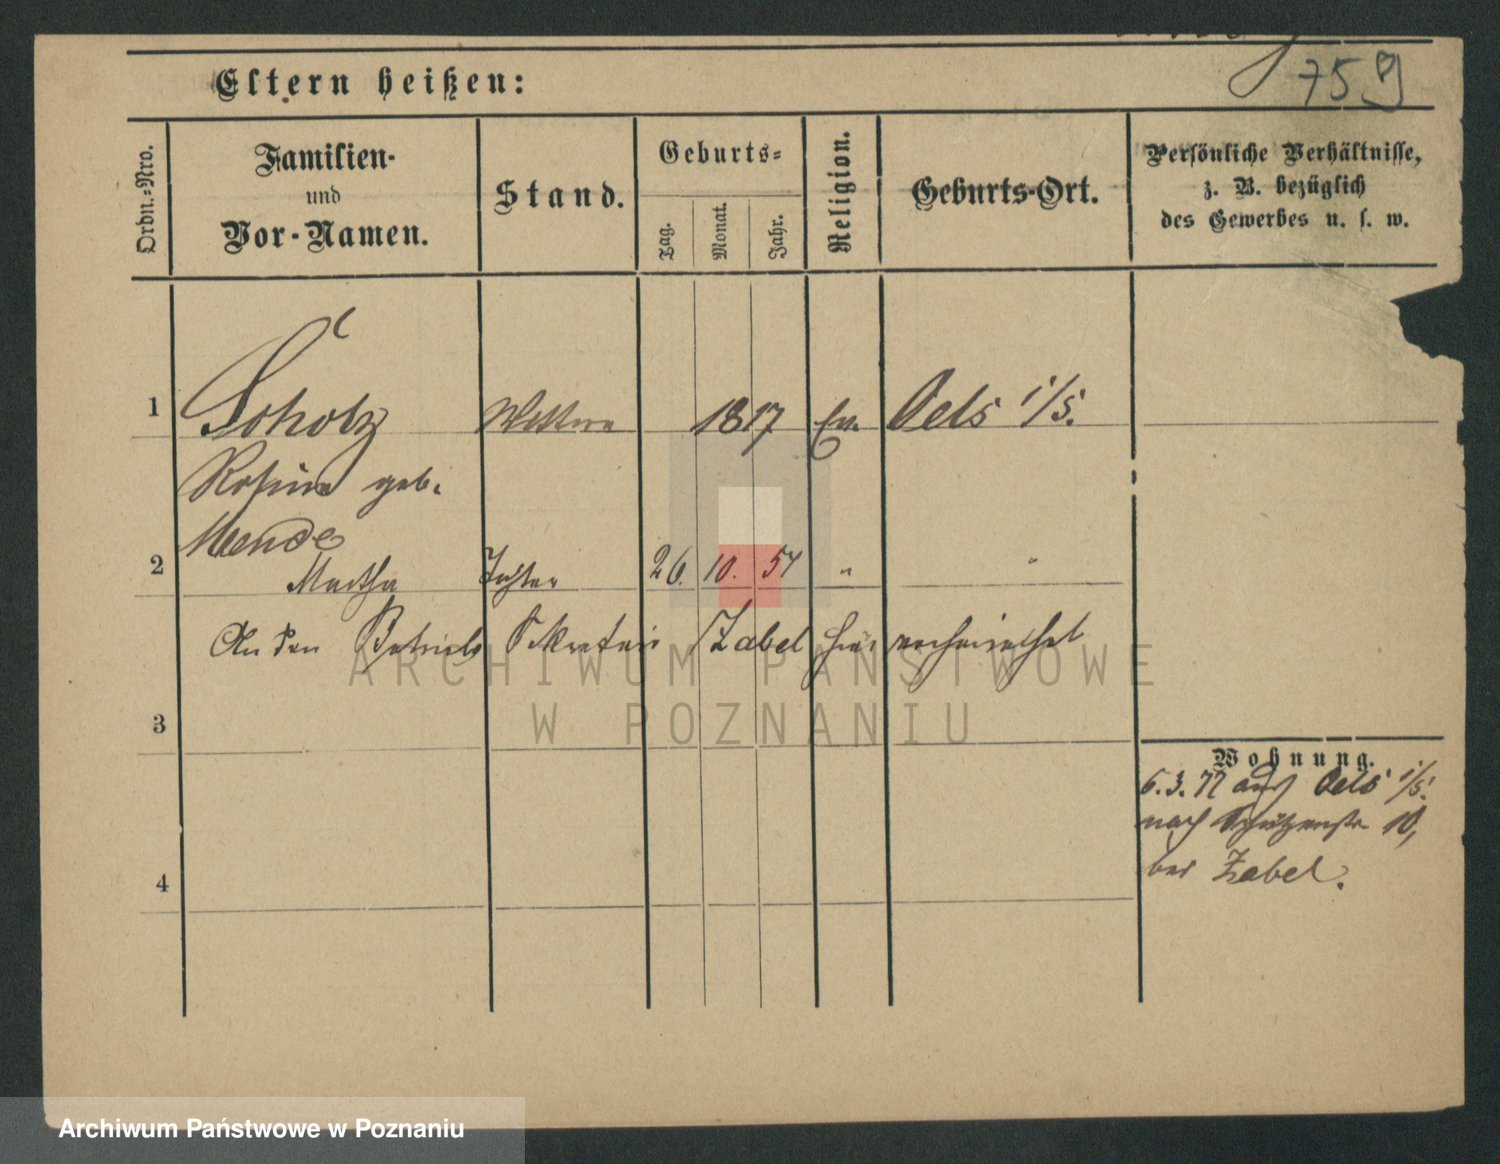 759
Eltern heißen:
Ordn.-Nro.
Familien-
und
Vor-Namen.
Stand.
Geburts-
Tag.
Monat.
Jahr.
Religion.
Geburts-Ort.
Persönliche Verhältnisse,
z. B. bezüglich
des Gewerbes u. s. w.
1 Scholz Wittwe 1817 Ev. Oels i/S.
Rosina geb.
Mende
2 Martha Tochter 26. 10. 54 " "
An den Betriebs Sekretair Zabel hier verheirathet
3
Wohnung.
6.3.77 aus Oels i/S.
nach Schützenstr 10,
bei Zabel.
4
ARCHIWUM PAŃSTWOWE
W POZNANIU
Archiwum Państwowe w Poznaniu